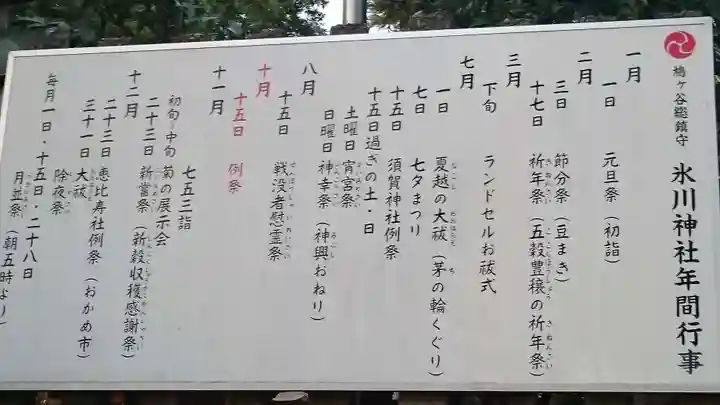 鳩ヶ谷総鎮守　氷川神社年間行事
一月
一日　元旦祭（初詣）
二月
三日　節分祭（豆まき）
十七日　祈年祭（五穀豊穣の祈年祭）
三月
下旬　ランドセルお祓式
七月
一日　夏越の大祓（茅の輪くぐり）
七日　七夕まつり
十五日　須賀神社例祭
十五日過ぎの土・日
土曜日　宵宮祭
日曜日　神幸祭（神輿おねり）
八月
十五日　戦没者慰霊祭
十月
十五日　例祭
十一月
七五三詣
初旬＝中旬　菊の展示会
二十三日　新嘗祭（新穀収穫感謝祭）
十二月
二十三日　恵比寿社例祭（おかめ市）
三十一日　大祓
除夜祭
毎月一日・十五日・二十八日
月並祭（朝五時より）